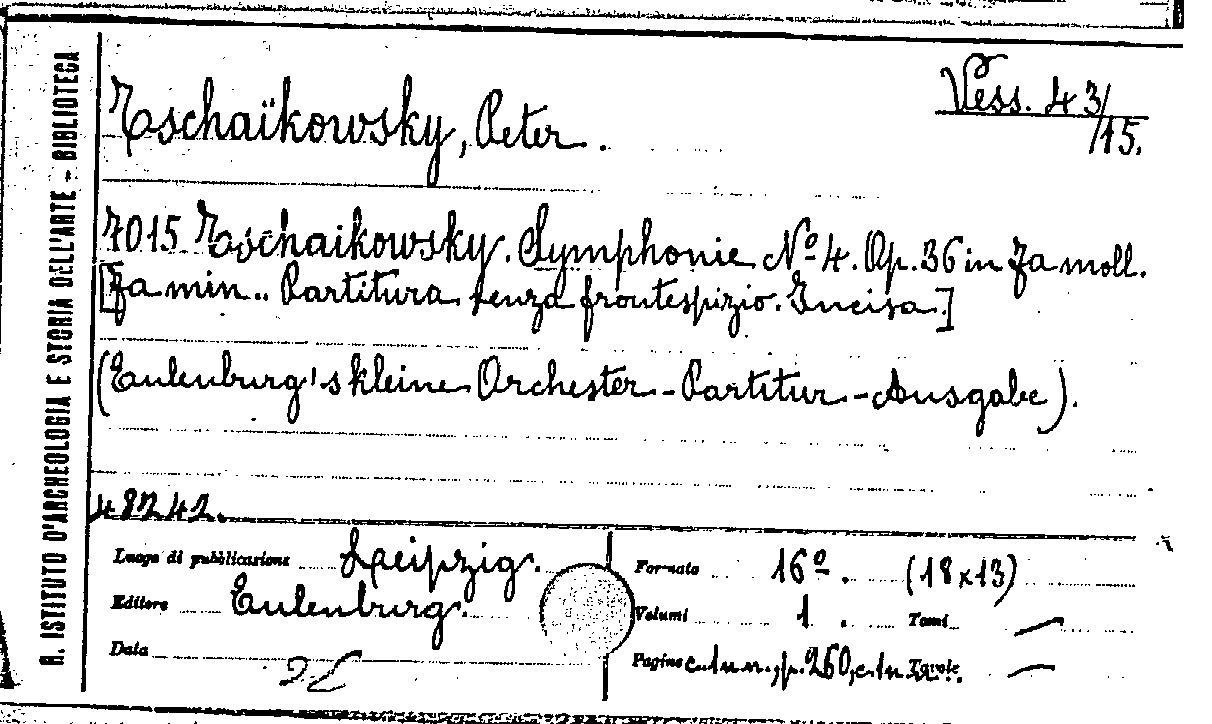 R. ISTITUTO D'ARCHEOLOGIA E STORIA DELL'ARTE - BIBLIOTECA
Vess. 43/15.
Tschaïkowsky, Peter.
7015 Tschaikowsky. Symphonie Nº 4. Op. 36 in Fa moll.
[Fa min.. Partitura senza frontespizio. Incisa.]
(Eulenburg's kleine Orchester-Partitur-Ausgabe).
48242.
Luogo di pubblicazione Leipzig.
Editore Eulenburg.
Data
Formato 16º. (18x13)
Volumi 1. Tomi —
Pagine c.1 n.n., p. 260, c.1n.n.. Tavole —